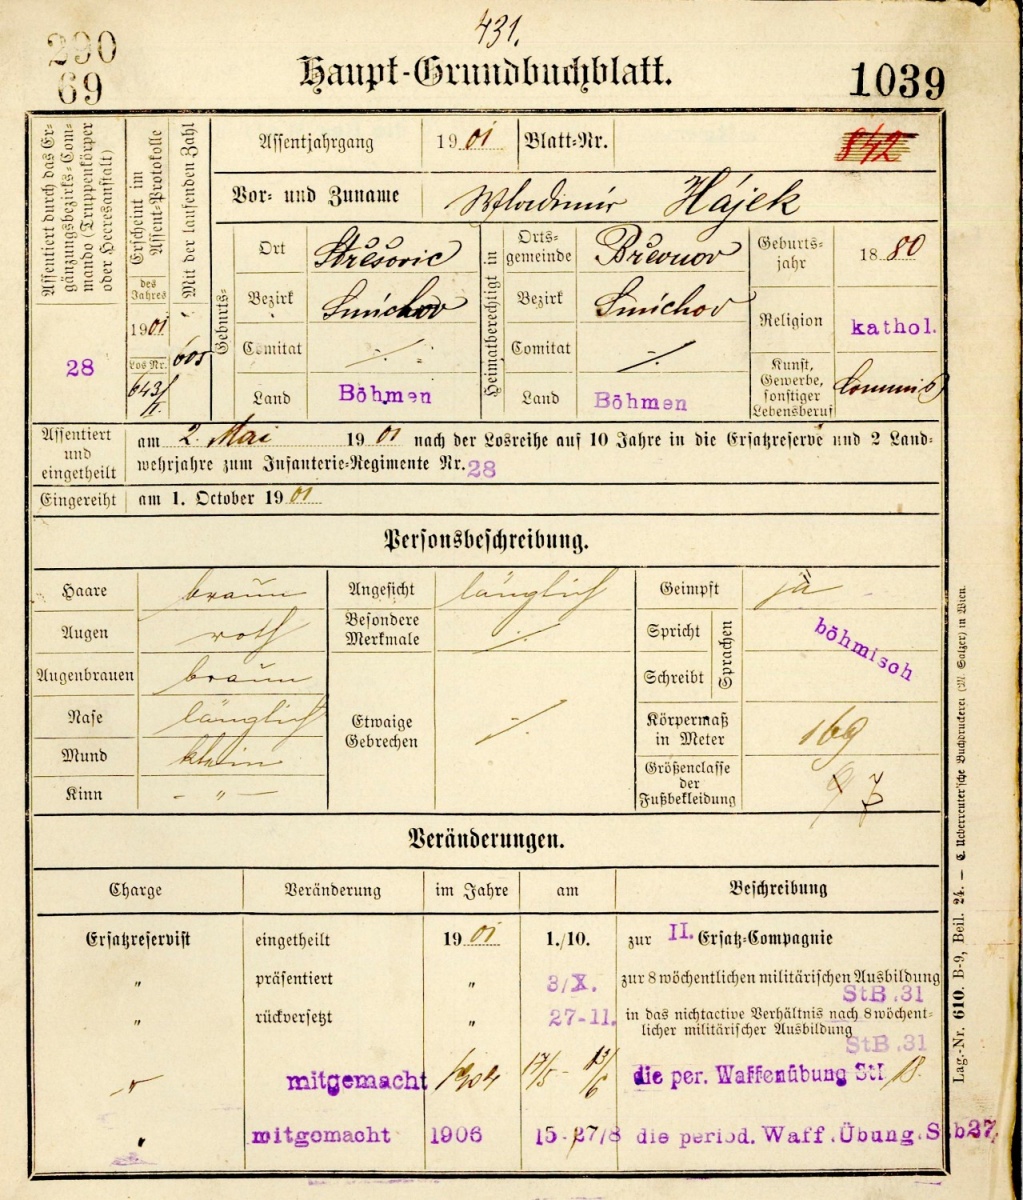 431.
290
69
Haupt-Grundbuchblatt.
1039
Assentiert durch das Er-
gänzungsbezirks-Com-
mando (Truppenkörper
oder Heeresanstalt)
28
Erscheint im
Assent-Protokolle
des
Jahres
1901
Los Nr.
643/II.
Mit der laufenden Zahl
605
Assentjahrgang 1901 Blatt-Nr. 842
Vor- und Zuname Wladimir Hájek
Geburts-
Ort Střešovic
Bezirk Smíchov
Comitat ·/·
Land Böhmen
Heimatberechtigt in
Orts-
gemeinde Břevnov
Bezirk Smíchov
Comitat ·/·
Land Böhmen
Geburts-
jahr 1880
Religion kathol.
Kunst,
Gewerbe,
sonstiger
Lebensberuf Commis
Assentiert
und
eingetheilt
am 2. Mai 1901 nach der Losreihe auf 10 Jahre in die Ersatzreserve und 2 Land-
wehrjahre zum Infanterie-Regimente Nr. 28
Eingereiht am 1. October 1901
Personsbeschreibung.
Haare braun
Augen roth
Augenbrauen braun
Nase länglich
Mund klein
Kinn - „ -
Angesicht länglich
Besondere
Merkmale ·/·
Etwaige
Gebrechen ·/·
Geimpft ja
Spricht
Schreibt
Sprachen
böhmisch
Körpermaß
in Meter 169
Größenclasse
der
Fußbekleidung 9 7
Veränderungen.
Charge Veränderung im Jahre am Beschreibung
Ersatzreservist eingetheilt 1901 1./10. zur II. Ersatz-Compagnie
„ präsentiert „ 3/X. zur 8 wöchentlichen militärischen Ausbildung
StB.31
„ rückversetzt „ 27-11. in das nichtactive Verhältnis nach 8 wöchent-
licher militärischer Ausbildung
StB.31
„ mitgemacht 1904 17/5 - 13/6 die per. Waffenübung StI 18.
„ mitgemacht 1906 15-27/8 die period. Waff.Übung.Stb27
Lag.-Nr. 610. B-9, Beil. 24. — C. Ueberreuter'sche Buchdruckerei (M. Salzer) in Wien.